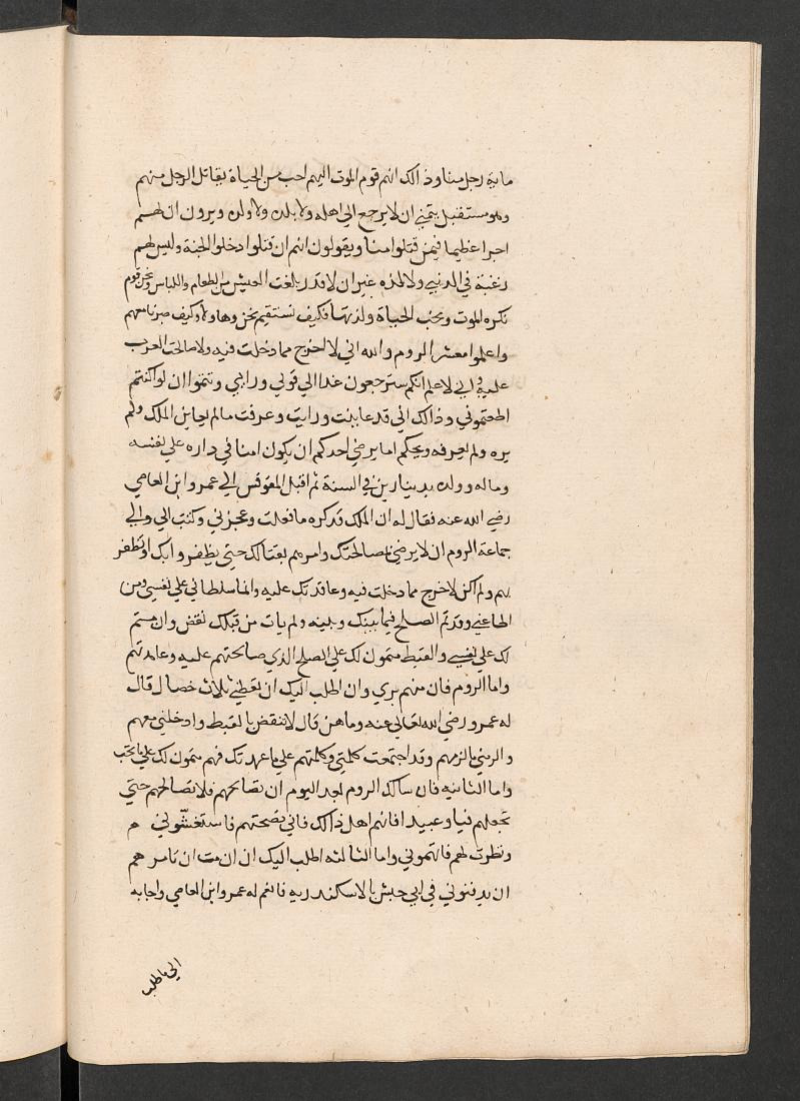 ماية رجل منا وذالك انهم قوم الموت اليهم احب من الحياة يقاتل الرجل منهم
وهو مستقبل يتمني ان لا يرجع الي اهله ولا بلده ولا ولده ويرون ان لهم
اجرا عظيما فيمن قتلوا منا ويقولون انهم ان قتلوا دخلوا الجنة وليس لهم
رغبة في الدنيي ولا لذه غير ان لا قدر بلغت العيش من الطعام واللباس ونحن قوم
نكره الموت ونحب الحياة ولذتها فكيف نستقيم نحن وهاولاء وكيف صبرنا معهم
واعلموا معشر الروم والله اني لا اخرج مما دخلت فيه ولا صالحت العرب
عليه واني لاعلم انكم سترجعون غدا الي قولي ورايي وتتمنوا ان لو اكنتم
اطعتموني وذالك اني قد عاينت ورايت وعرفت ما لم يعاين الملك ولم
يره ولم يعرفه ويحكم اما يرضي احدكم ان يكون امنا في داره علي نفسه
وماله وولده بدينارين في السنة ثم اقبل المقوقس الي عمروا ابن العاصي
رضي الله عنه فقال له ان الملك قد كره ما فعلت وعجزني وكتب الي والي
جماعة الروم ان لا يرضي بمصالحتك وامرهم بقتالك حتي يظفروا بك او تظفر
بهم ولم اكن لاخرج مما دخلت فيه وعاقدتك عليه وانما سلطاني علي نفسي ومن
اطاعني وقد تم الصلح فيما بينك وبينه ولم يات من قبلك نقض وان متم
لك علي نفسي والقبط متمون لك علي الصلح الذي صالحتهم عليه وعاهدتهم
واما الروم فان منهم بري وان اطلب اليك ان تعطني ثلاث خصال قال
له عمرو رضي الله تعالي عنه وما هن قال لا تنقض بالقبط وادخلني معهم
والزمني ما لزمهم وقد اجتمعت كلمتي وكلمتهم علي ما عهدتك فهم متمون لك علي ما تحب
واما الثانيه فان سالك الروم بعد اليوم ان تصالحهم فلا تصالحهم حتي
تجعلهم فيا وعبيدا فانهم اهل ذالك فاني نصحتهم فاستغشوني م
ونظرت لهم فاتهموني واما الثالثه اطلب اليك ان ان مت ان تامرهم
ان يدفنوني في ابي حبش بالاسكندريه فانعم له عمروا بن العاصي واجابه
الي ما طلب